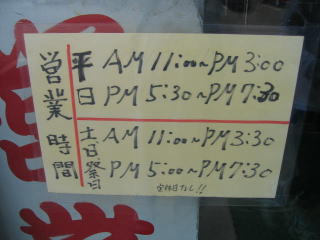 営業時間
平日 AM 11:00~PM 3:00
PM 5:30~PM 7:30
土日祭日 AM 11:00~PM 3:30
PM 5:00~PM 7:30
定休日なし!!